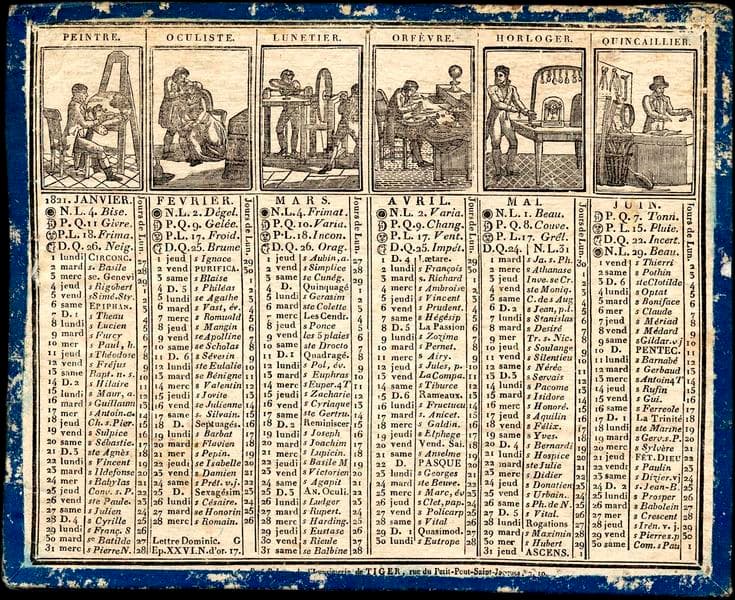 PEINTRE.
OCULISTE.
LUNETIER.
ORFÈVRE.
HORLOGER.
QUINCAILLIER.
1821. JANVIER.
N.L. 4. Bise.
P.Q. 11 Givre.
P.L. 18. Frima.
D.Q. 26. Neig.
Jours de Lun.
1 lundi CIRCONC. 27
2 mard s Basile 28
3 merc se. Genev. 29
4 jeud s Rigobert
5 vend s Simé. Sty.
6 same EPIPHAN.
7 D. 1 s Theau
8 lundi s Lucien
9 mard s Furcy
10 mer s Paul, h.
11 jeud s Théodose
12 ven s Fréjus
13 same Bapt. n. s.
14 D. 2 s Hilaire
15 lund s Maur, a.
16 mard s Guillaum
17 mer s Antoin. a.
18 jeud Ch. s. Pier.
19 ven s Sulpice
20 same s Sébastie.
21 D. 3 ste Agnès
22 lundi s Vincent
23 mard s Ildefons
24 mer s Babylas
25 jeud Conv. s. P.
26 vend ste Paule.
27 same s Julien
28 D. 4 s Cyrille
29 lund s Franç. S
30 mard se Batilde
31 merc s Pierre N.
FEVRIER.
N.L. 2. Dégel.
P.Q. 9. Gelée.
P.L. 17. Froid.
D.Q. 25. Brume
Jours de Lun.
1 jeud s Ignace
2 vend PURIFICA.
3 same s Blaise
4 D. 5 s Philéas
5 lundi se Agathe
6 mard s Vast, év.
7 merc s Romuald
8 jeud s Mangin
9 vend se Apolline
10 same se Scholas
11 D. 6 s Séverin
12 lundi ste Eulalie
13 mard se Bénigne
14 merc s Valentin
15 jeud s Jovite
16 vend se Julienne
17 same s. Silvain.
18 D. Septuagés.
19 lundi s Barbat
20 mard s Flavien
21 mer s Pepin.
22 jeud se Isabelle
23 vend s Damien
24 same s Prét. v. j.
25 D. Sexagésim
26 lundi s Césaire.
27 mard se Honorin
28 merc s Romain.
Lettre Dominic. G
Ep. XXVI. N. d'or. 17.
MARS.
N.L. 4. Frimat.
P.Q. 10. Varia.
P.L. 18. Incon.
D.Q. 26. Orag.
Jours de Lun.
1 jeud s Aubin, a.
2 vend s Simplice
3 same se. Cunég.
4 D. Quinquagé
5 lundi s Gerasim
6 mard ste Colette
7 merc Les Cendr.
8 jeud s Ponce
9 vend les 5 plaies
10 same ste Drocto
11 D. 1 Quadragé.
12 lundi s Pol, év.
13 mard s Euphras
14 merc s Euper. 4 T
15 jeudi s Zacharie
16 vend s Cyriaque
17 same ste Gertru.
18 D. 2 Reminiscer
19 lundi s Joseph
20 mard s Joachim
21 merc s Lupicin.
22 jeudi s Basile M
23 vend s Victorien
24 same s Agapit
25 D. 3 AN. Oculi.
26 lundi s Ludger
27 mard s Rupert.
28 merc s Harding.
29 jeudi s Eustase
30 vend s Rieule
31 same se Balbine
AVRIL.
N.L. 2. Varia.
P.Q. 9. Chang.
P.L. 17. Vent.
D.Q. 25. Impét.
Jours de Lun.
1 D. 4 Lætare.
2 lundi s François
3 mard s. Richard
4 merc s Ambroise
5 jeudi s Vincent
6 vend s Prudent.
7 same s Hégésip
8 D. 5 La Passion
9 lundi s Zozime
10 mard s Pernet.
11 merc s Airy.
12 jeud s Jules, p.
13 vend La Compa.
14 same s Tiburce
15 D. 6 Rameaux.
16 lundi s Fructueu
17 mard s. Anicet.
18 merc s Galdin.
19 jeud s Elphege
20 vend Vend. Sai.
21 same s Anselme
22 D. PASQUE
23 lundi s Georges
24 mard ste Beuve.
25 merc s Marc, év
26 jeud s Clet, pap.
27 vend s Policarp
28 same s Vital
29 D. Quasimod.
30 lund s Eutrope
MAI.
N.L. 1. Beau.
P.Q. 8. Couve.
P.L. 17. Grêl.
D.Q. 24. N.L. 31
Jours de Lun.
1 mard s Ja. s. Ph.
2 merc s Athanase
3 jeud Inve. se Cr.
4 vend ste Moniq.
5 same C. des Aug
6 D. 2 s Jean, p. l.
7 lundi s Stanislas
8 mard s Desiré
9 mer Tr. s. Nic.
10 jeud s Soulange
11 vend s Silentiet
12 same s. Nérée
13 D. 3 s Servais
14 lundi s Pacome
15 mard s Isidore
16 merc s Honoré.
17 jeud s Aquilin
18 vend s Félix.
19 same s Yves.
20 D. 4 s Bernardi
21 lundi s Hospice
22 mard ste Julie
23 merc s Didier
24 jeud s Donatien
25 vend s Urbain.
26 same s Ph. de N.
27 D. 5 s Vital.
28 lund Rogations
29 mard s Maximin
30 mer s Hubert
31 jeud ASCENS.
JUIN.
P.Q. 7. Tonn.
P.L. 15. Pluie.
D.Q. 22. Incert.
N.L. 29. Beau.
Jours de Lun.
1 vend s Thierri
2 same s Pothin
3 D. 6 ste Clotilde
4 lund s Optat
5 mard s Boniface
6 mer s Claude
7 jeud s Mériad
8 vend s Médard
9 same s Gildar. v j
10 D. PENTEC.
11 lundi s Barnabé
12 mard s Gerbaud
13 merc s Antoin 4 T
14 jeud s Rufin
15 vend s Gui.
16 same s Ferreole
17 D. 1 La Trinité
18 lund ste Marine
19 mard s Gerv. s. P.
20 merc s Sylvère
21 jeud FÊT. DIEU
22 vend s Paulin
23 same s Dizier. vj
24 D. 2 s Jean-B.
25 lund s Prosper
26 mard s Babolein
27 mer s Crescent
28 jeud s Irén. v. j.
29 vend s Pierre s. p
30 same Com. s Pau
de TIGER, rue du Petit-Pont-Saint-Jacques,